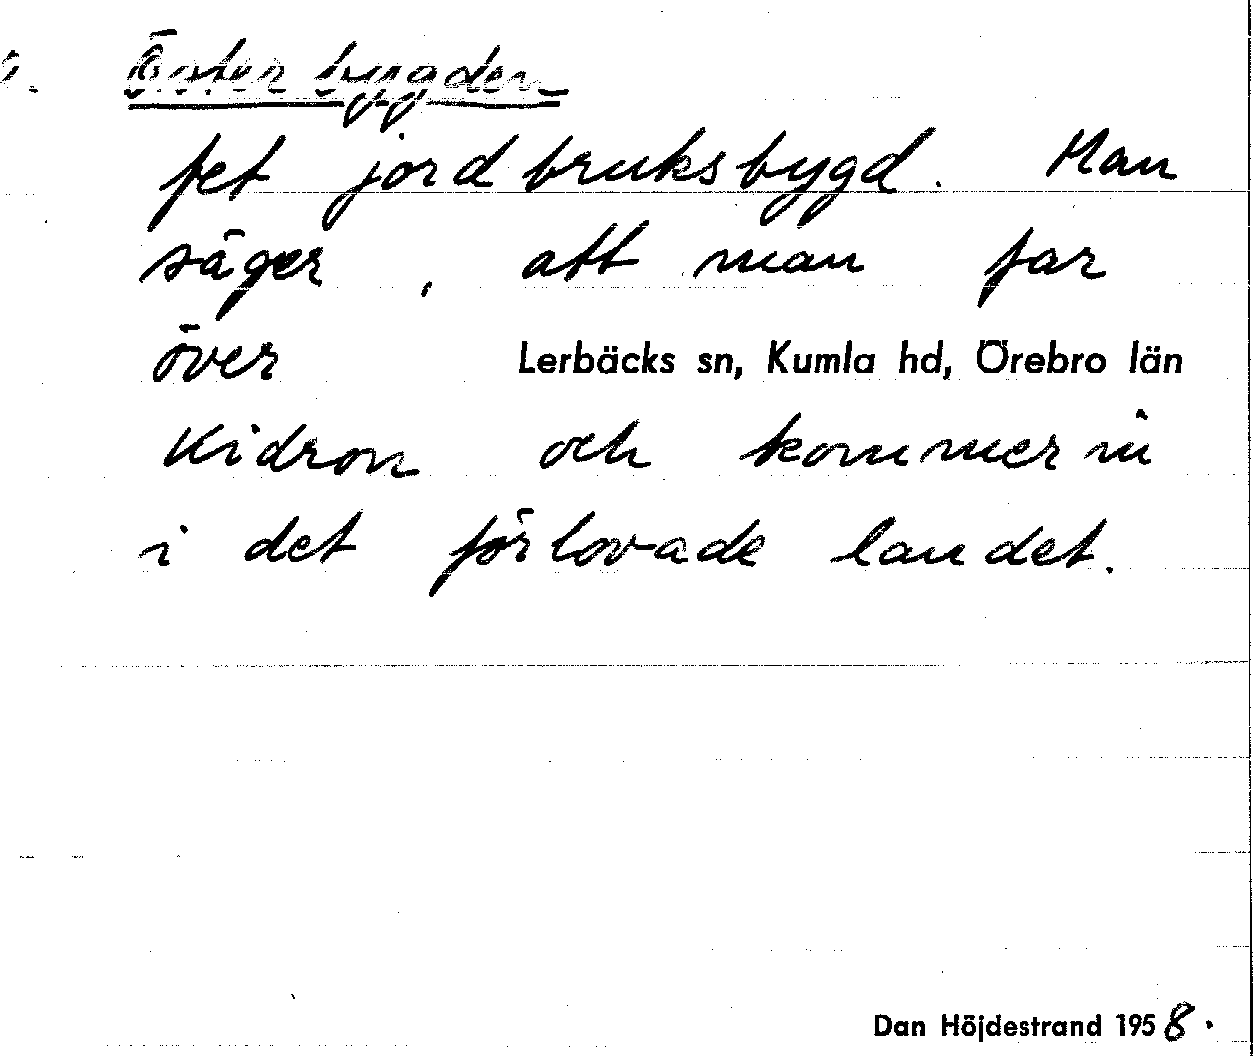 Österbygden
fet jordbruksbygd. Man
säger, att man far
över Lerbäcks sn, Kumla hd, Örebro län
Kidron och kommer in
i det förlovade landet.
Dan Höjdestrand 1958.